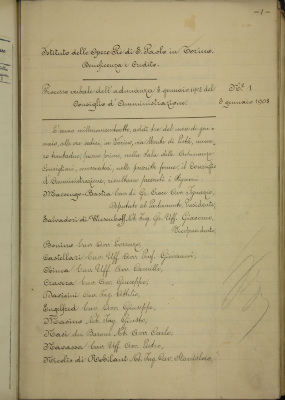 — 1 —
Istituto delle Opere Pie di S. Paolo in Torino.
Beneficenza e Credito.
Processo verbale dell'adunanza 8 gennaio 1908 del
Consiglio d'Amministrazione.
N.º 1
8 gennaio 1908
L'anno millenovecentootto, addì otto del mese di gen-
naio, alle ore sedici, in Torino, via Monte di Pietà, numero
trentadue, piano primo, nella Sala delle Adunanze
Consigliari, convocatosi, nelle prescritte forme, il Consiglio
d'Amministrazione, risultano presenti i Signori:
Marsengo-Bastia Avv. Ignazio,
Deputato al Parlamento, Presidente
Salvadori di Wiesenhoff Ing. Gr. Uff. Giacomo,
Vicepresidente
Bonino Cav. Lorenzo,
Castellari Cav. Uff. Avv. Prof. Giovanni,
Cav. Uff. Avv. Camillo,
Cravera Cav. Avv. Giuseppe,
Cav. Ing.
Engelfred Cav. Avv. Giuseppe,
Masino Ing.
Masi dei Baroni Avv. Carlo,
Ravassa Cav. Uff. Avv. Pietro,
Nicolis di Robilant Ing. Cav. Stanislao,